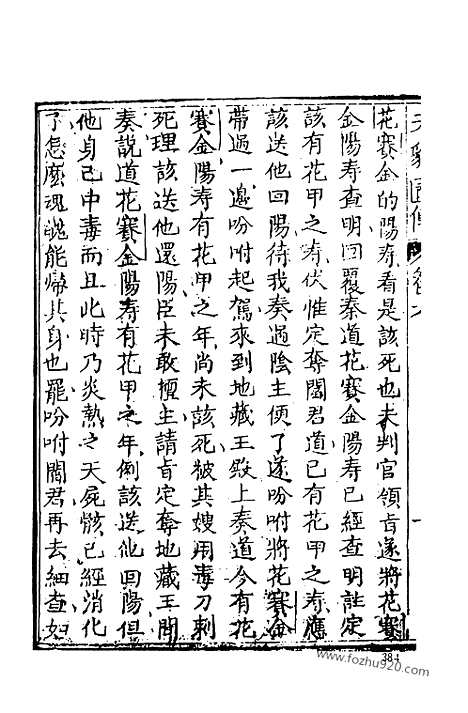 花賽金的陽寿看是該死也未判官領㫖遂將花賽
金陽寿查明回覆秦道花賽金陽寿已經查明註定
該有花甲之寿伏惟定奪閻君道已有花甲之寿應
該送他回陽待我奏過陰主便了遂吩咐將花賽金
帶過一邊吩咐起駕來到地藏王殿上奏道今有花
賽金陽寿有花甲之年尚未該死被其嫂用毒刀刺
死理該送他還陽臣未敢擅主請㫖定奪地藏王開
奏說道花賽金陽寿有花甲之年例該送他回陽但
他身己中毒而且此時乃炎熱之天屍骸已經消化
了怎麼魂魄能歸其身也罷吩咐閻君再去細查如
384
www.fozhu920.com